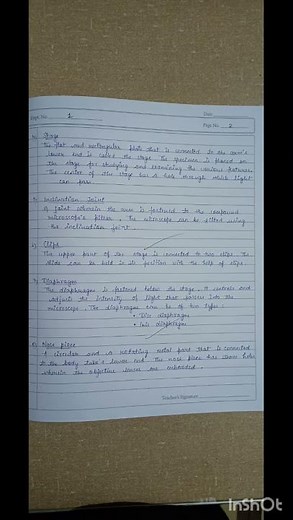 Page No. 2
Date
Page No. 2
Stage
The flat and rectangular plate that is connected to the arm's
lower end is called the stage. The specimen is placed on
the stage for studying and examining the various features.
The center of the stage has a hole through which light
can pass.
Inclination Joint
A joint wherein the arm is fastened to the compound
microscope's pillar. The microscope can be tilted using
the inclination joint.
Clips
The upper part of the stage is connected to two clips. The
slide can be held in its position with the help of clips.
Diaphragm
The diaphragm is fastened below the stage. It controls and
adjusts the intensity of light that passes into the
microscope. The diaphragm can be of two types:
• Disc diaphragm
• Iris diaphragm
Nose piece
A circular and a rotating metal part that is connected
to the body tube's lower end. The nose piece has three holes
wherein the objective lenses are embedded.
Teacher's Signature
InShOt